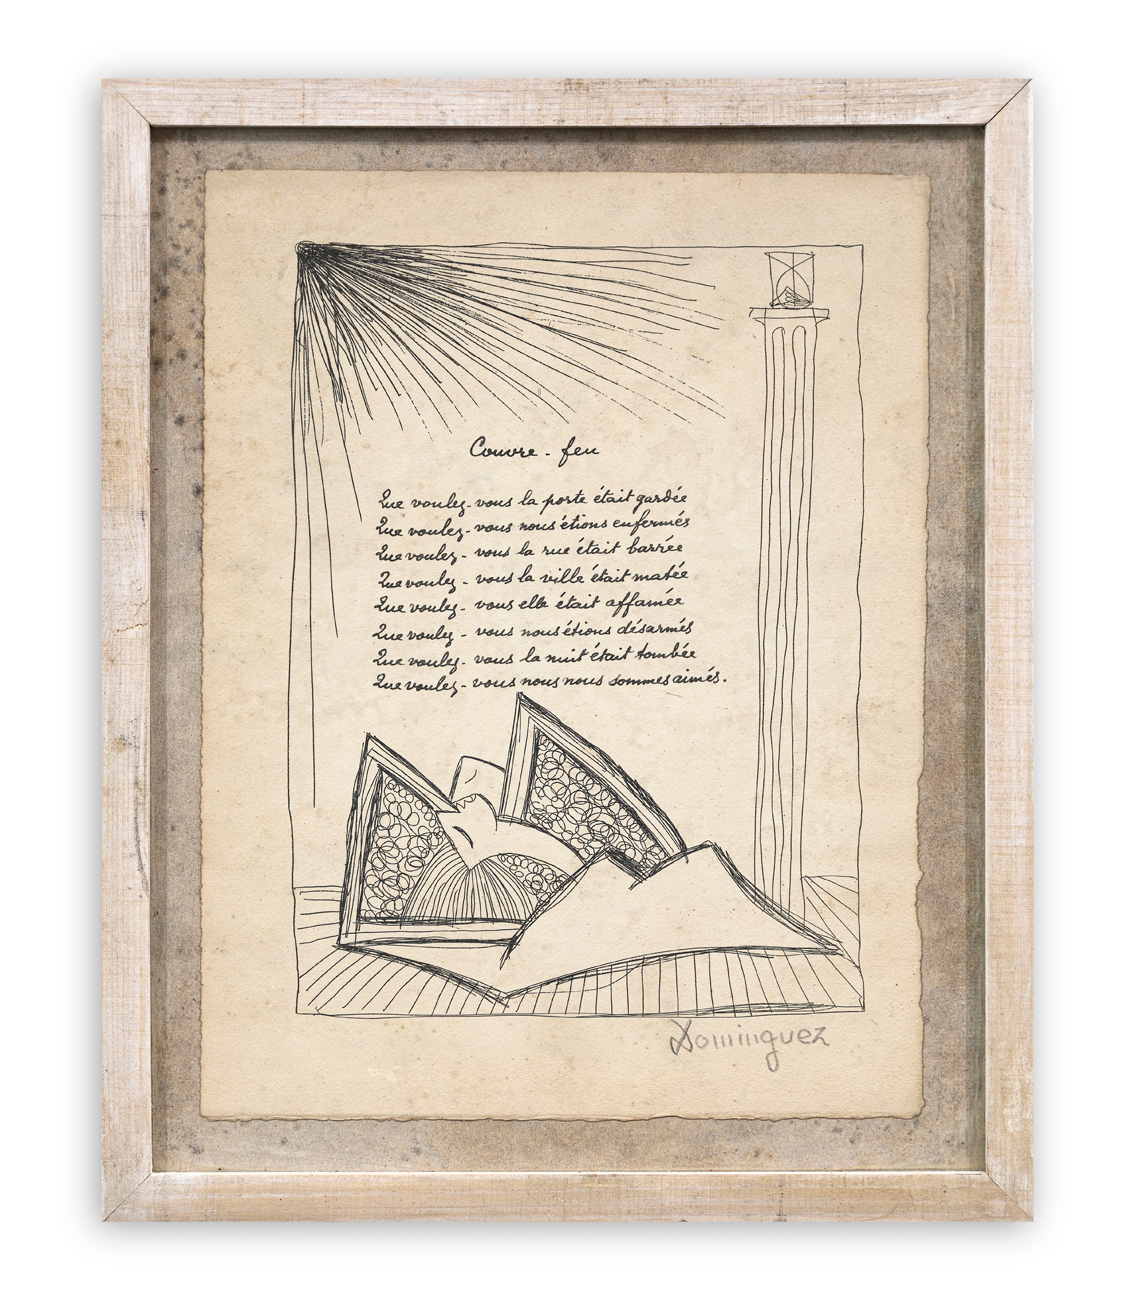 Couvre-feu
Que voulez-vous la porte était gardée
Que voulez-vous nous étions enfermés
Que voulez-vous la rue était barrée
Que voulez-vous la ville était matée
Que voulez-vous elle était affamée
Que voulez-vous nous étions désarmés
Que voulez-vous la nuit était tombée
Que voulez-vous nous nous sommes aimés.
Dominguez